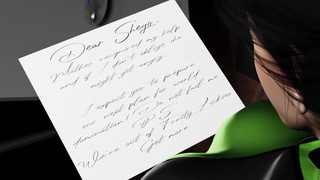 Dear Shego.
Mother required my help
and if I don't oblige she
might get angry.
I expect you to prepare
our next plan for world
domination! Do not fail me
P.S
We're out of Fruity Lickers
Get more